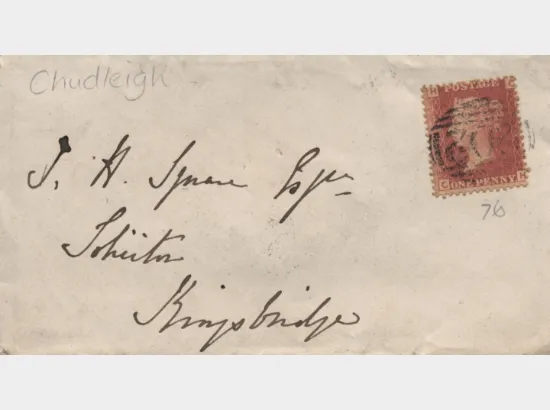 Chudleigh
POSTAGE
J. H. Square Esqre
Solicitor
Kingsbridge
ONE PENNY
76